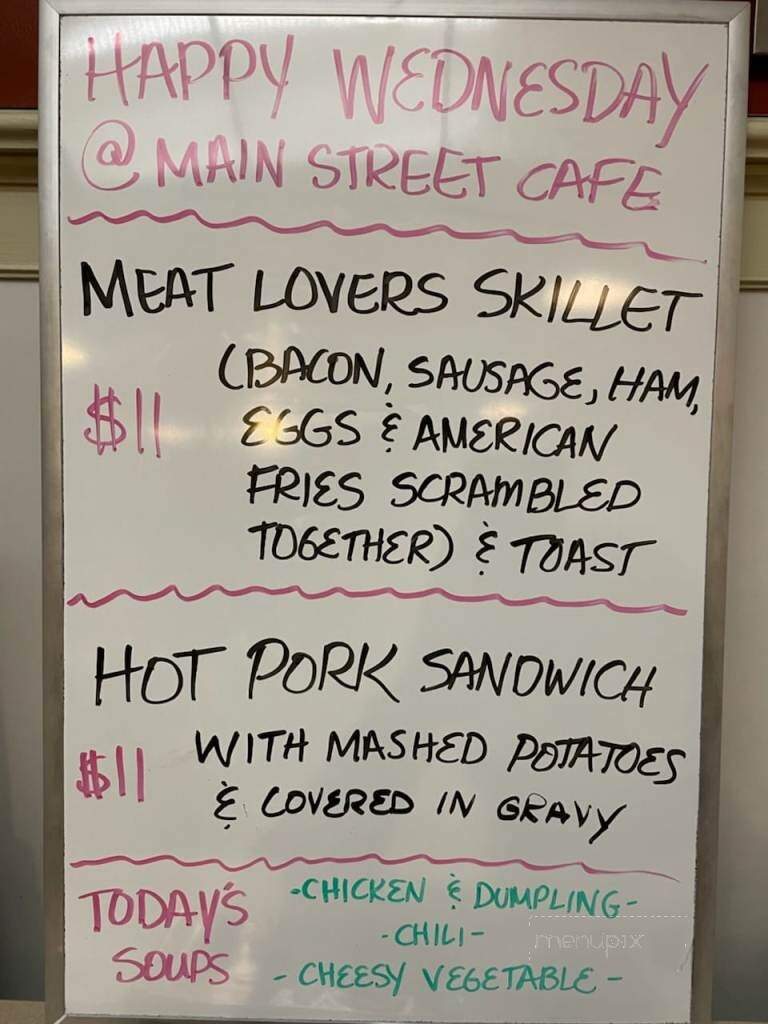 HAPPY WEDNESDAY
@ MAIN STREET CAFE
MEAT LOVERS SKILLET
(BACON, SAUSAGE, HAM,
$11 EGGS & AMERICAN
FRIES SCRAMBLED
TOGETHER) & TOAST
HOT PORK SANDWICH
$11 WITH MASHED POTATOES
& COVERED IN GRAVY
TODAY'S SOUPS
-CHICKEN & DUMPLING-
-CHILI-
-CHEESY VEGETABLE-
menupix